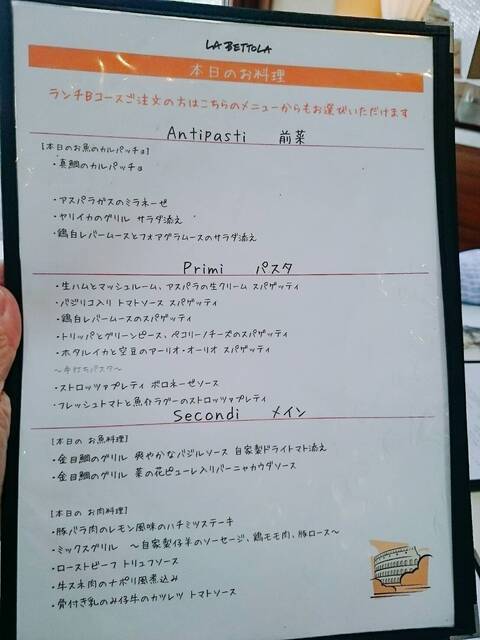 LA BETTOLA
本日のお料理
ランチBコースご注文の方はこちらのメニューからもお選びいただけます
Antipasti 前菜
【本日のお魚のカルパッチョ】
・真鯛のカルパッチョ
・アスパラガスのミラネーゼ
・ヤリイカのグリル サラダ添え
・鶏白レバームースとフォアグラムースのサラダ添え
Primi パスタ
・生ハムとマッシュルーム、アスパラの生クリーム スパゲッティ
・バジリコ入り トマトソース スパゲッティ
・鶏白レバームースのスパゲッティ
・トリッパとグリーンピース、ペコリーノチーズのスパゲッティ
・ホタルイカと空豆のアーリオ・オーリオ スパゲッティ
～手打ちパスタ～
・ストロッツァプレティ ボロネーゼソース
・フレッシュトマトと魚介ラグーのストロッツァプレティ
Secondi メイン
【本日の お魚料理】
・金目鯛のグリル 爽やかなバジルソース 自家製ドライトマト添え
・金目鯛のグリル 菜の花ピューレ入りバーニャカウダソース
【本日の お肉料理】
・豚バラ肉のレモン風味のハチミツステーキ
・ミックスグリル ～自家製仔羊のソーセージ、鶏モモ肉、豚ロース～
・ローストビーフ トリュフソース
・牛スネ肉のナポリ風煮込み
・骨付き乳のみ仔牛のカツレツ トマトソース